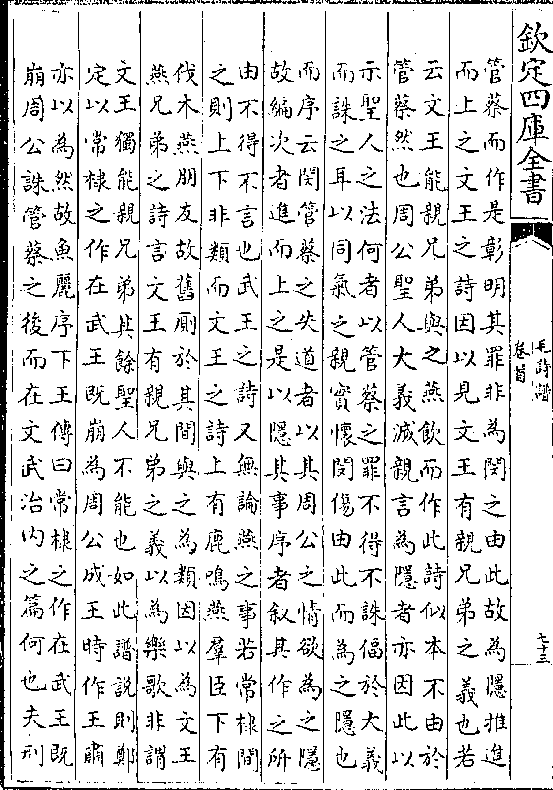 欽定四庫全書
毛詩譜
卷首
七十三
管蔡而作是彰明其罪非為閔之由此故為隱推進
而上之文王之詩因以見文王有親兄弟之義也若
云文王能親兄弟與之燕飲而作此詩似本不由於
管蔡然也周公聖人大義滅親言為隱者亦因此以
示聖人之法何者以管蔡之罪不得不誅偪於大義
而誅之耳以同氣之親實懷閔傷由此而為之隱也
而序云閔管蔡之失道者以其周公之情欲為之隱
故編次者進而上之是以隱其事序者叙其作之所
由不得不言也武王之詩又無論燕之事若常棣間
之則上下非類而文王之詩上有鹿鳴燕羣臣下有
伐木燕朋友故舊厠於其間與之為類因以為文王
燕兄弟之詩言文王有親兄弟之義以為樂歌非謂
文王獨能親兄弟其餘聖人不能也如此譜說則鄭
定以常棣之作在武王既崩為周公成王時作王肅
亦以為然故魚麗序下王傳曰常棣之作在武王既
崩周公誅管蔡之後而在文武治內之篇何也夫刑